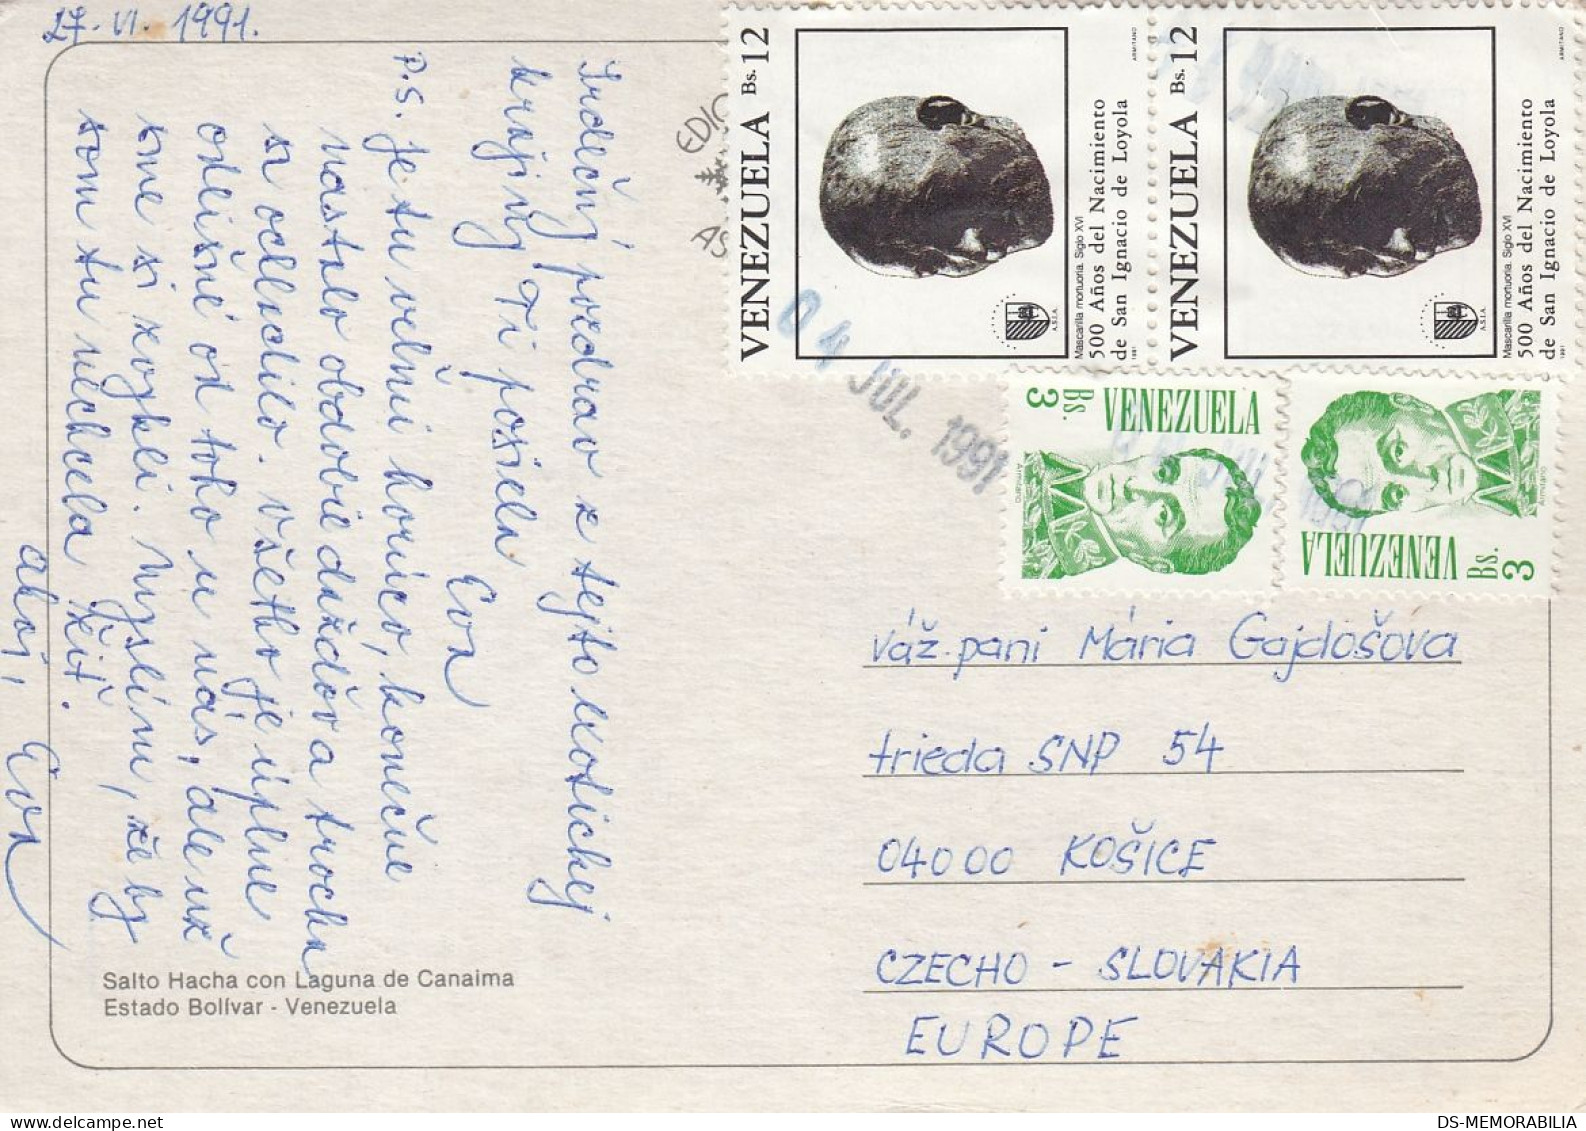 27. VI. 1991.
Srdečný pozdrav z tejto exotickej
krajiny Ti posiela
Eva
P.S. je tu veľmi horúco, konečne
nastalo obdobie dažďov a trocha
sa ochladilo. Všetko je úplne
odlišné od toho u nás, ale už
sme si zvykli. Myslím, že by
som tu nechcela žiť.
ahoj, Eva
Salto Hacha con Laguna de Canaima
Estado Bolívar - Venezuela
EDIC
AS
VENEZUELA Bs. 12
ARMITANO
Mascarilla mortuoria. Siglo XVI
500 Años del Nacimiento
de San Ignacio de Loyola
1991
A.S.I.A.
VENEZUELA Bs. 12
ARMITANO
Mascarilla mortuoria. Siglo XVI
500 Años del Nacimiento
de San Ignacio de Loyola
1991
A.S.I.A.
04 JUL. 1991
VENEZUELA
Bs. 3
Armitano
VENEZUELA
Bs. 3
Armitano
Váž. pani Mária Gajdošova
trieda SNP 54
04000 KOŠICE
CZECHO - SLOVAKIA
EUROPE
DS-MEMORABILIA